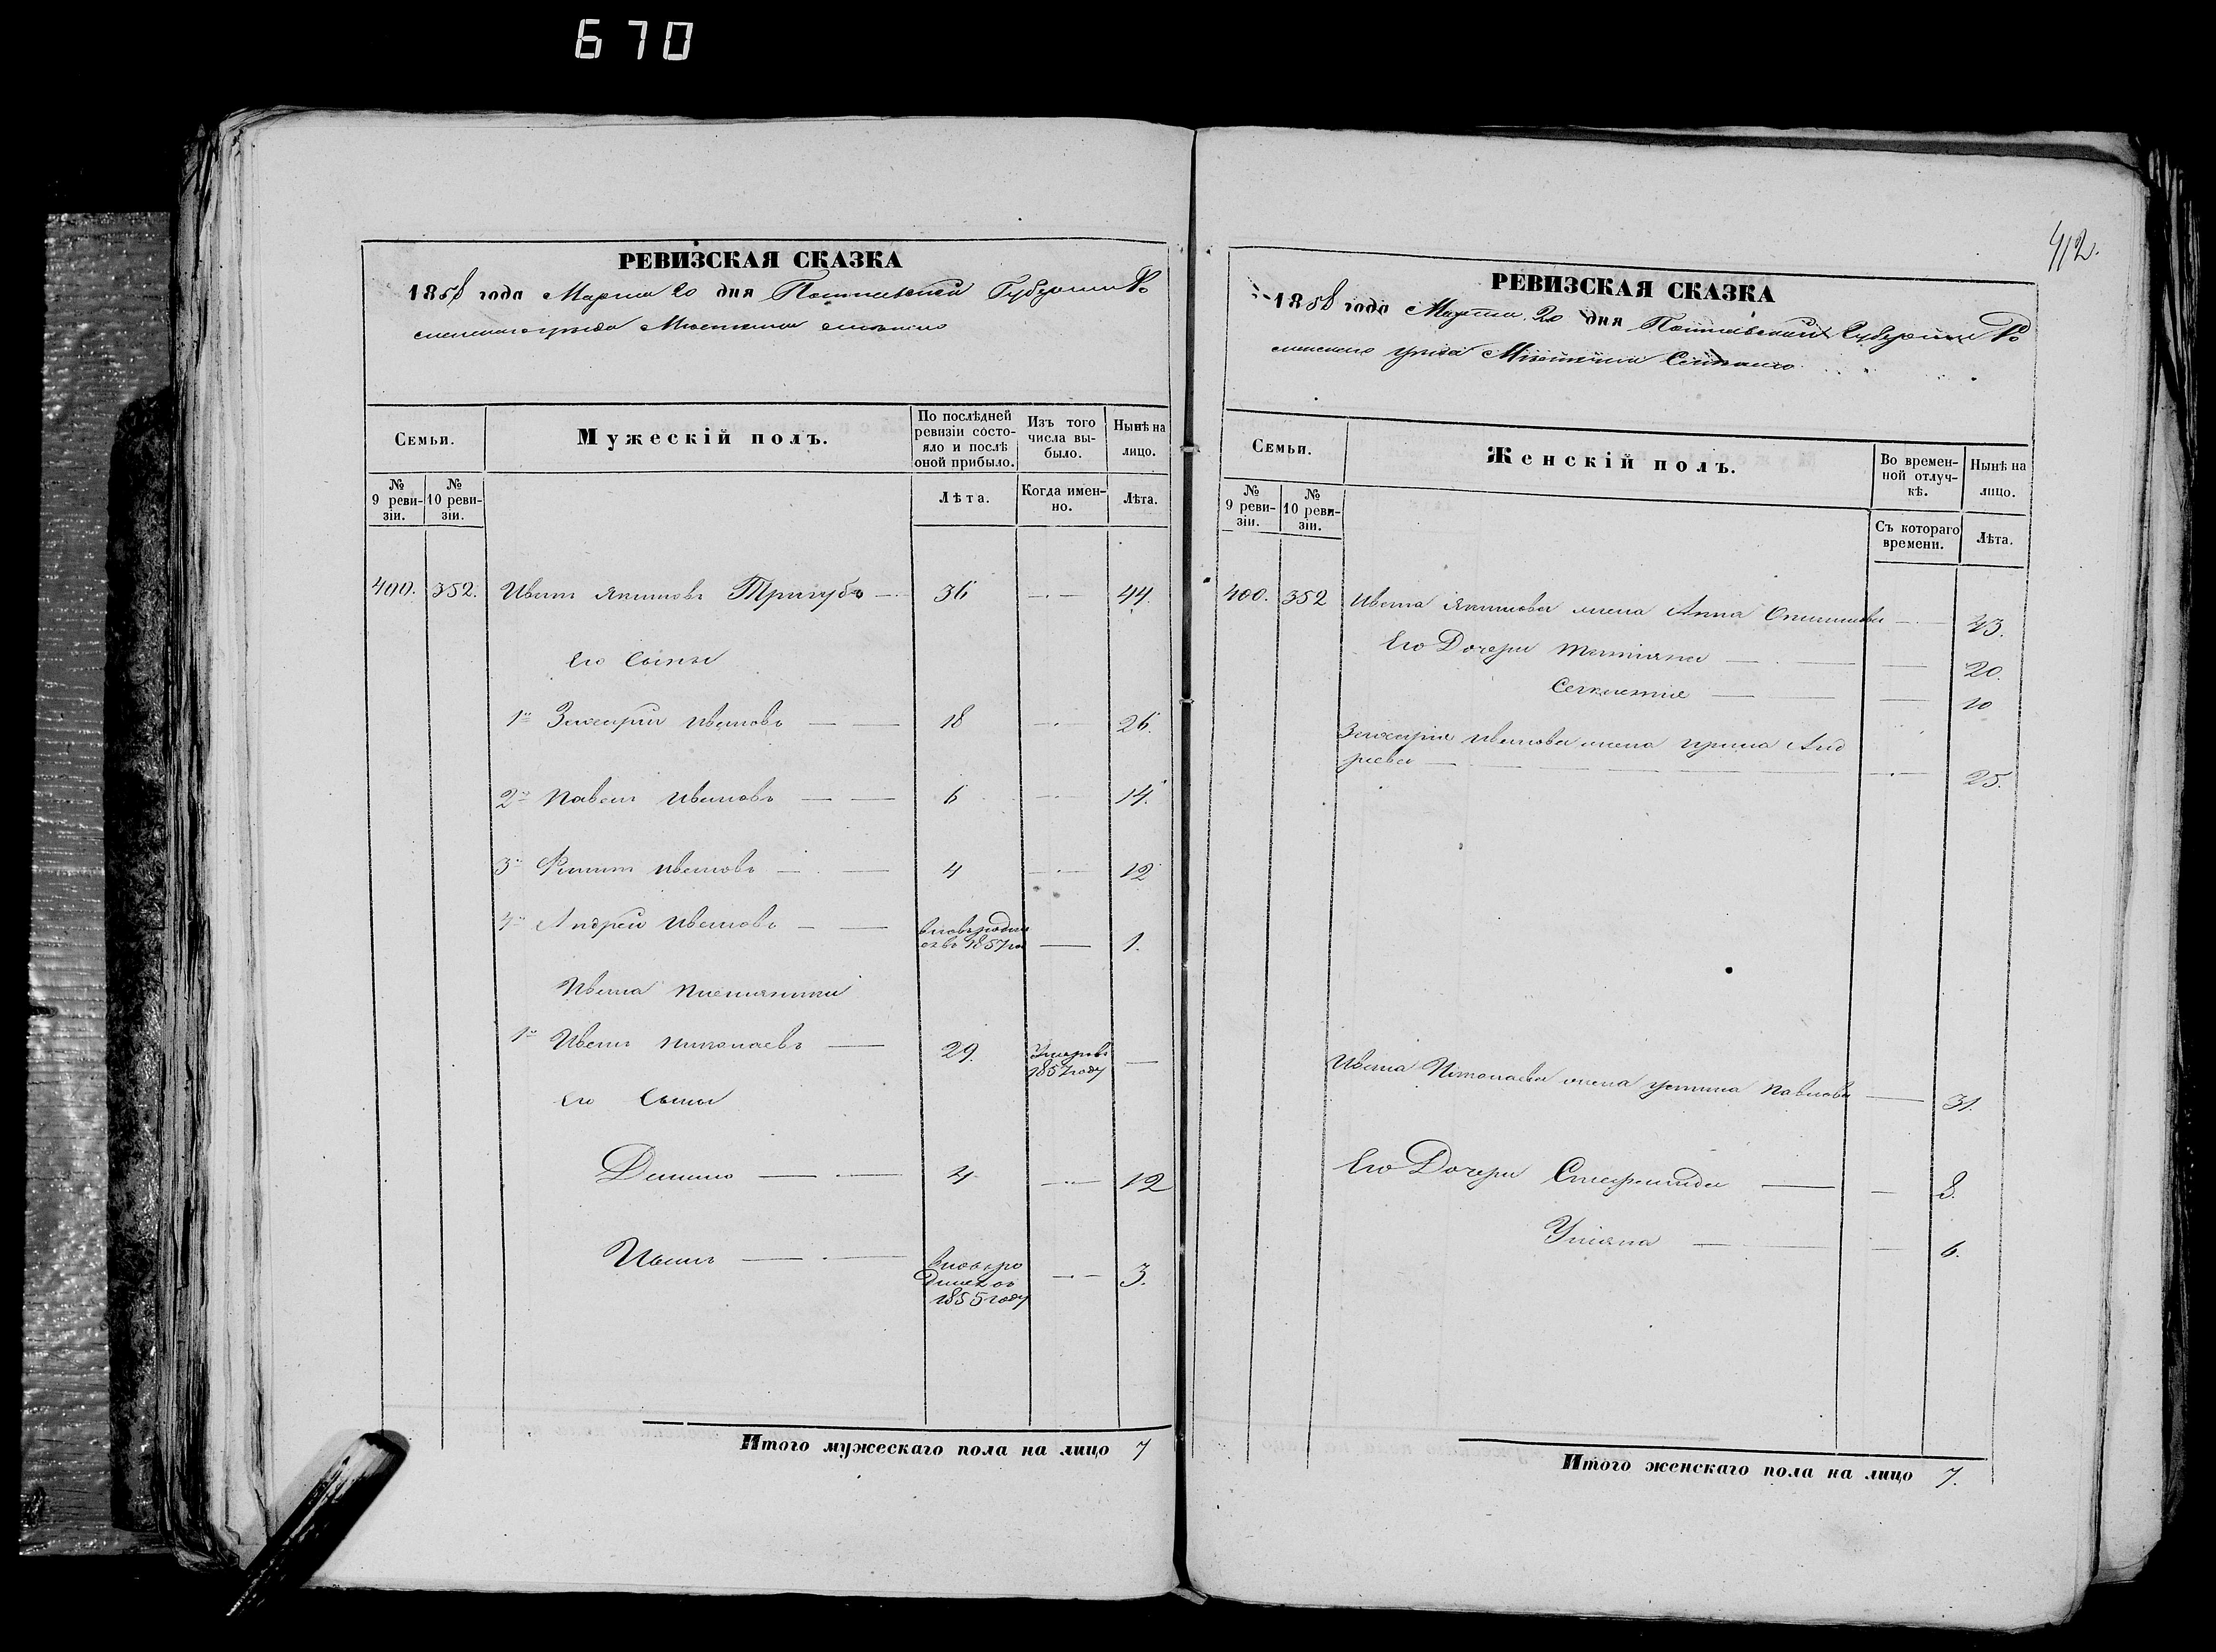 670
412.
РЕВИЗСКАЯ СКАЗКА
1858 года Марта 20 дня Полтавской Губерніи Ро
менскаго уезда Местечка Смѣлаго
Семьи.
Мужескій полъ.
По послѣдней ревизіи состояло и послѣ оной прибыло.
Изъ того числа выбыло.
Нынѣ на лицо.
№ 9 ревизіи.
№ 10 ревизіи.
Лѣта.
Когда именно.
Лѣта.
400. 352. Иванъ Якимовъ Тригубъ — 36 — 44.
Его Сыны
1й Захарій Ивановъ — — 18 — 26.
2й Павелъ Ивановъ — — 6 — 14.
3й Филипъ Ивановъ — — 4 — 12
4й Андрей Ивановъ — — вновь родил
ся въ 1857 го — 1.
Ивана племяники
1й Иванъ Николаевъ — 29. Умеръ въ
1857 году —
Его Сыны
Данило — — 4 — 12
Иванъ — — вновь ро
дился въ
1855 году — 3.
Итого мужескаго пола на лицо 7
РЕВИЗСКАЯ СКАЗКА
1858 года Марта 20 дня Полтавской Губерніи Ро
менскаго уезда Местечка Смѣлаго
Семьи.
Женскій полъ.
Во временной отлучкѣ.
Нынѣ на лицо.
№ 9 ревизіи.
№ 10 ревизіи.
Съ котораго времени.
Лѣта.
400. 352 Ивана Якимова жена Анна — 43.
Его Дочери Татіяна — — 20.
— — 10
Захарія Иванова жена Ирина Анд
реева — — 25.
Ивана Николаева жена Устина Павлова — 31.
Его Дочери — — 8.
Уліяна — — 6.
Итого женскаго пола на лицо 7.